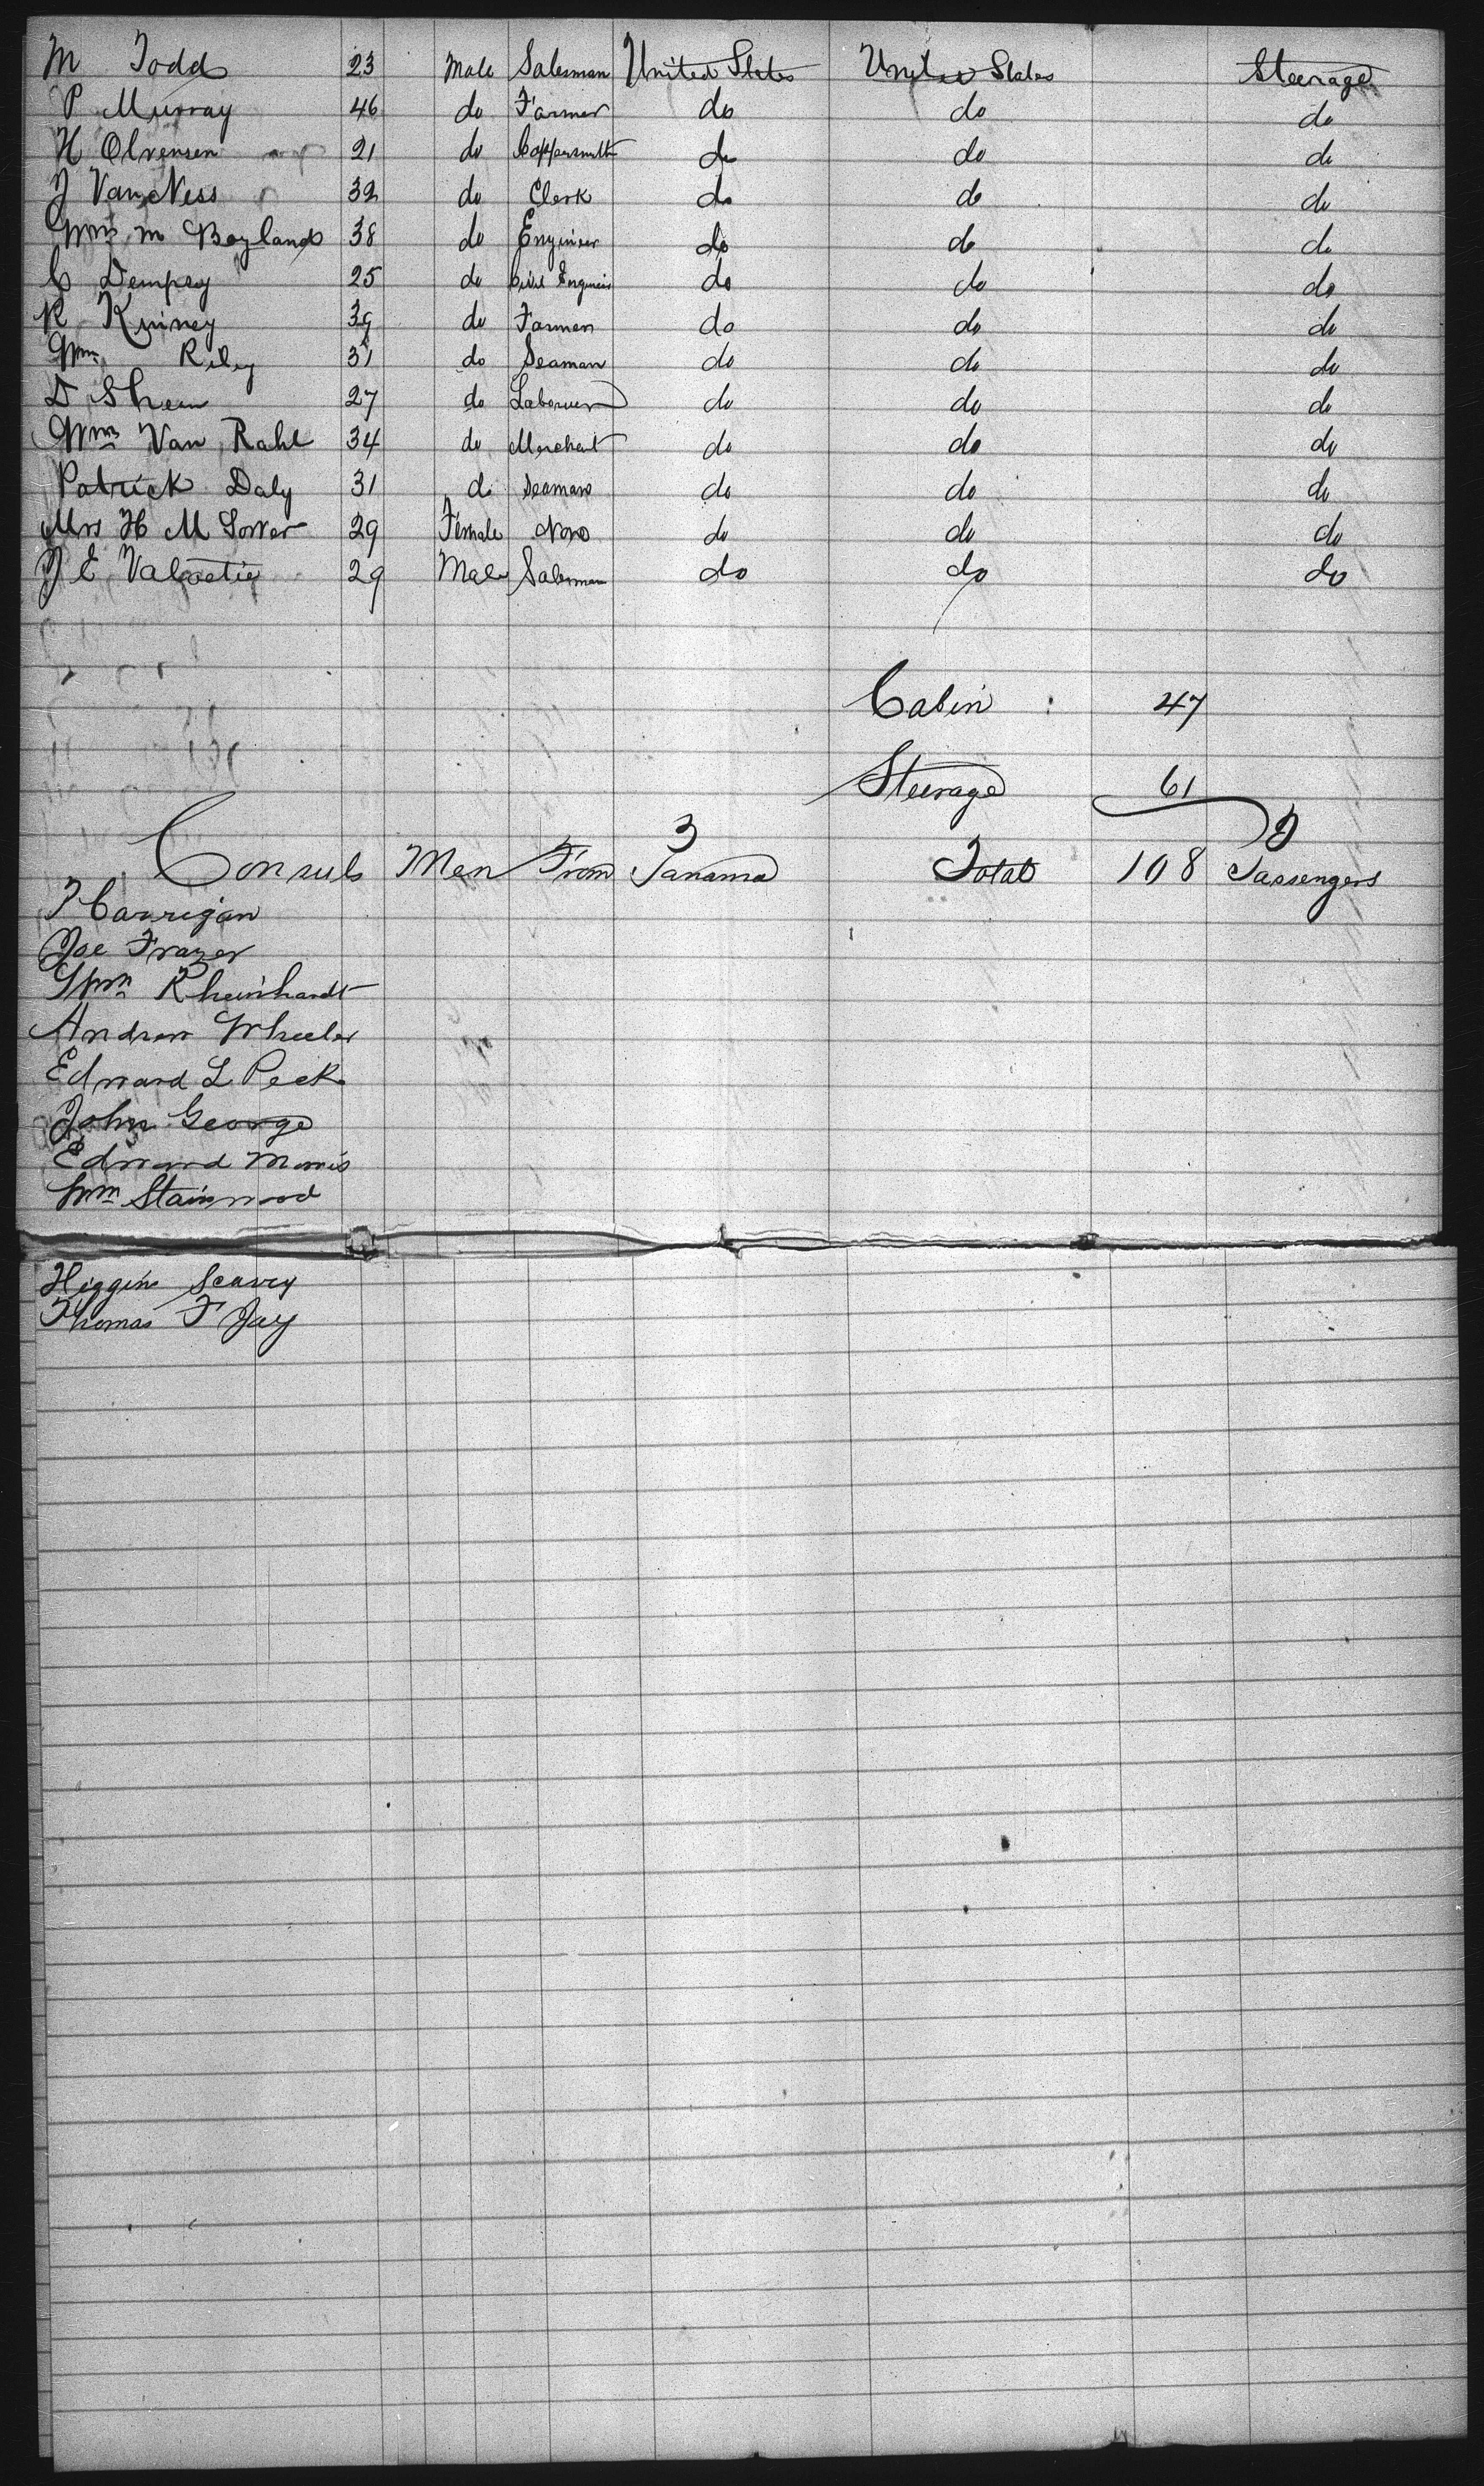 M Todd 23 Male Salesman United States United States Steerage
P Murray 46 do Farmer do do do
H Olvensen 21 do Coppersmith do do do
J Van Ness 32 do Clerk do do do
Wm M Boyland 38 do Engineer do do do
C Dempsy 25 do Civil Engineer do do do
R Kinney 39 do Farmer do do do
Wm Riley 31 do Seaman do do do
D Shea 27 do Laborer do do do
Wm Van Rahl 34 do Merchant do do do
Patrick Daly 31 do Seaman do do do
Mrs H M 29 Female None do do do
J E 29 Male Salesman do do do
Cabin : 47
Steerage 61
Consuls Men From Panama Total 108 Passengers
T Carrigan
Joe Frazer
Wm Rheinhardt
Andrew Wheeler
Edward L Peck
John George
Edward Morris
Wm Stainwood
Higgins Seavey
Thomas F Jay